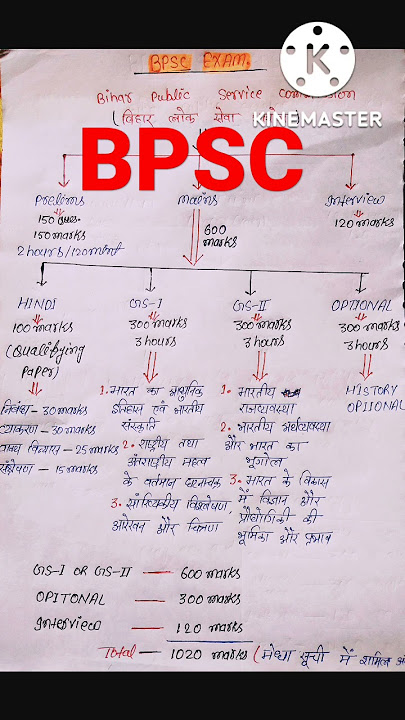 BPSC EXAM.
Bihar Public Service Commission
(बिहार लोक सेवा
KINEMASTER
BPSC
Prelims
mains
Interview
150 Ques.
150 marks
2 hours/120 minut
600 marks
120 marks
HINDI
GS-I
GS-II
OPTIONAL
100 marks
300 marks
300 marks
300 marks
(Qualifying Paper)
3 hours
3 hours
3 hours
निबंध - 30 marks
व्याकरण - 30 marks
वाक्य विन्यास - 25 marks
संक्षेपण - 15 marks
1. भारत का आधुनिक
इतिहास एवं भारतीय
संस्कृति
2. राष्ट्रीय तथा
अंतराष्ट्रीय महत्व
के वर्तमान घटनाचक्र
3. सांख्यिकीय विश्लेषण,
आरेखन और चित्रण
1. भारतीय
राज्यव्यवस्था
2. भारतीय अर्थव्यवस्था
और भारत का
भूगोल
3. भारत के विकास
में विज्ञान और
प्रौद्योगिकी की
भूमिका और प्रभाव
HISTORY
OPIIONAL
GS-I OR GS-II — 600 marks
OPITONAL — 300 marks
Interview — 120 marks
Total — 1020 marks (मेधा सूची में शामिल